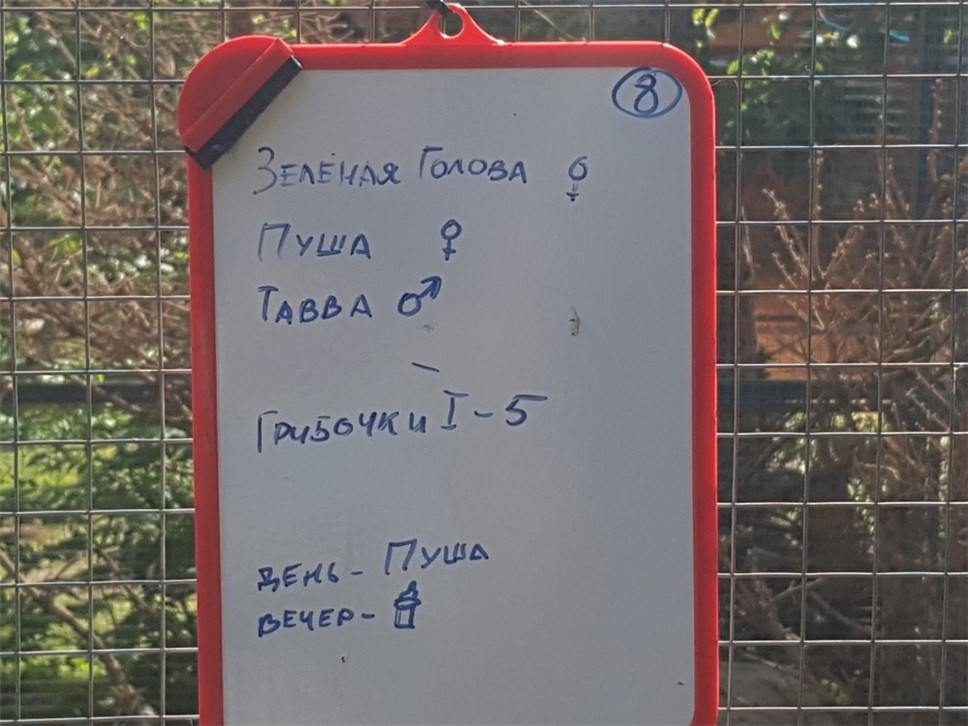 8
Зелёная Голова ♀
Пуша ♀
Тавва ♂
Грибочки I - 5
день - Пуша
вечер -